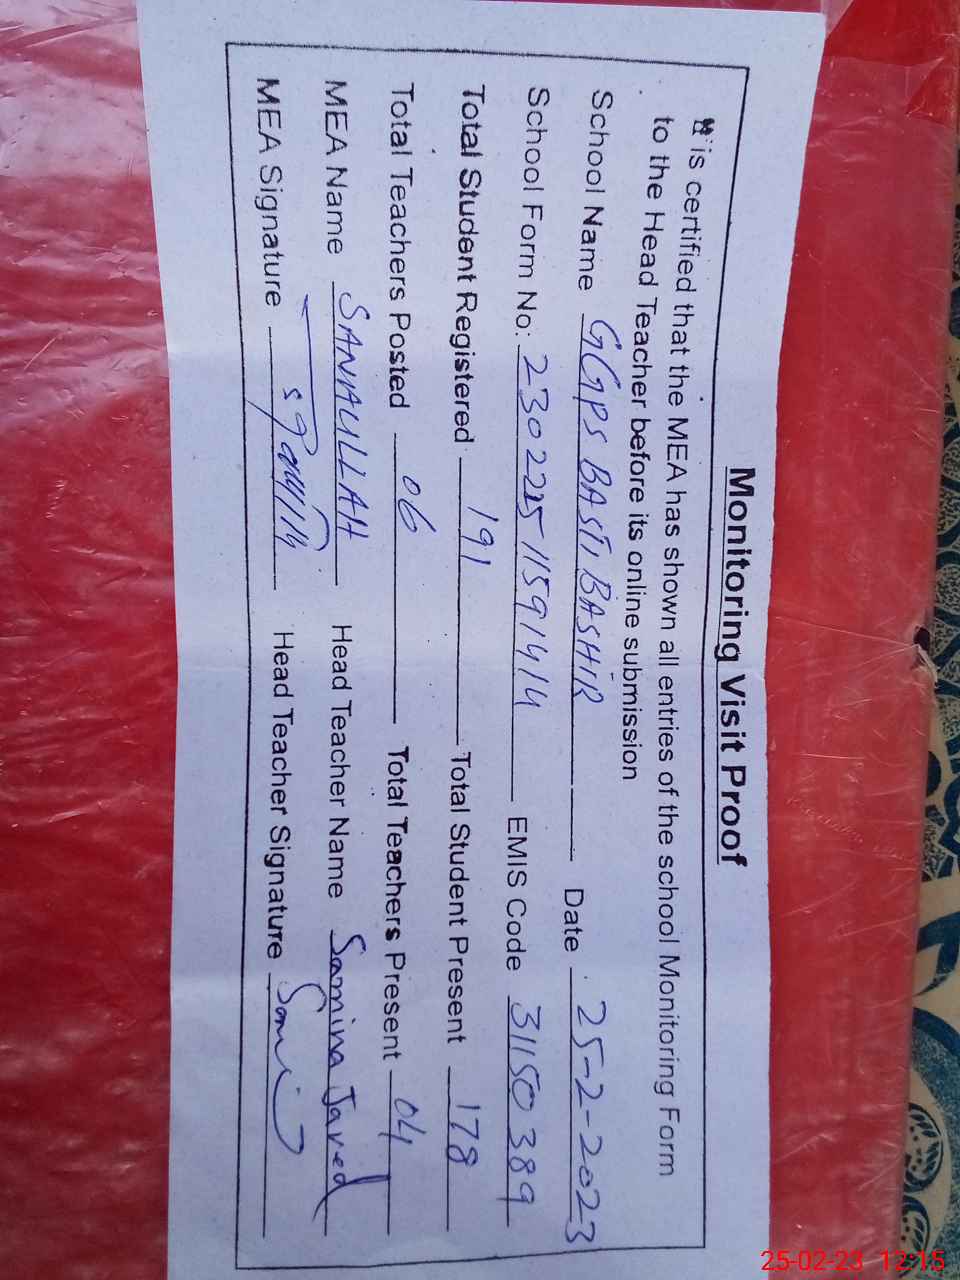 Monitoring Visit Proof
It is certified that the MEA has shown all entries of the school Monitoring Form
to the Head Teacher before its online submission
School Name GGPS BASTI BASHIR Date 25-2-2023
School Form No: 230225 11591414 EMIS Code 31150389
Total Student Registered 191 Total Student Present 178
Total Teachers Posted 06 Total Teachers Present 04
MEA Name SANAULLAH Head Teacher Name Samina Javed
MEA Signature Head Teacher Signature
25-02-23 12:15